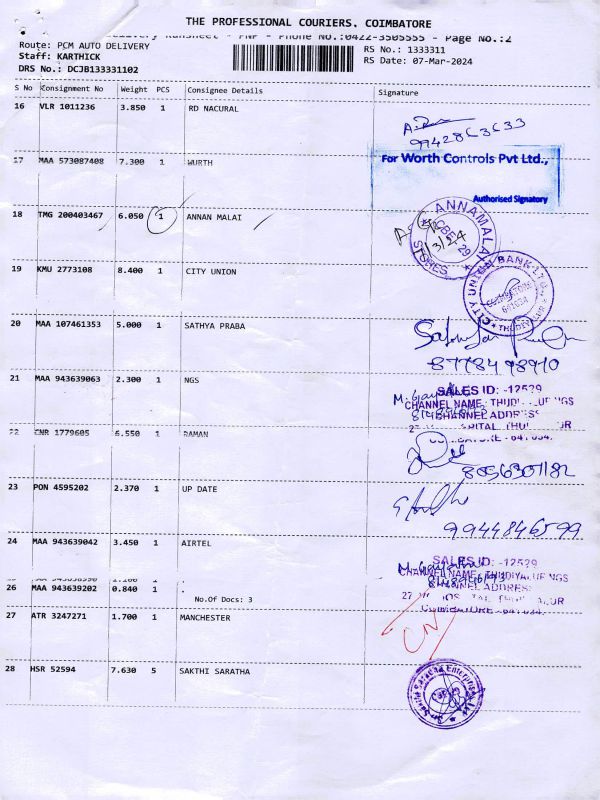 THE PROFESSIONAL COURIERS. COIMBATORE
Delivery Runsheet - PNP - Phone No.:0422-3505555 - Page No.:2
Route: PCM AUTO DELIVERY
Staff: KARTHICK
DRS No.: DCJB133331102
RS No.: 1333311
RS Date: 07-Mar-2024
S No Consignment No Weight PCS Consignee Details Signature
16 VLR 1011236 3.850 1 RD NACURAL
9942863633
17 MAA 573087408 7.300 1 WURTH
For Worth Controls Pvt Ltd.,
Authorised Signatory
18 TMG 200403467 6.050 1 ANNAN MALAI
ANNAMALAI STORES
CBE 29
19 KMU 2773108 8.400 1 CITY UNION
CITY UNION BANK LTD.
THUDIYALUR
20 MAA 107461353 5.000 1 SATHYA PRABA
8778498910
21 MAA 943639063 2.300 1 NGS
SALES ID: -12529
CHANNEL NAME: THUDI
CHANNEL ADDRESS
22 CNR 1779605 6.550 1 RAMAN
8056307182
23 PON 4595202 2.370 1 UP DATE
9944846599
24 MAA 943639042 3.450 1 AIRTEL
SALES ID: -12529
CHANNEL NAME
ADDRESS
26 MAA 943639202 0.840 1
No.Of Docs: 3
27 ATR 3247271 1.700 1 MANCHESTER
28 HSR 52594 7.630 5 SAKTHI SARATHA